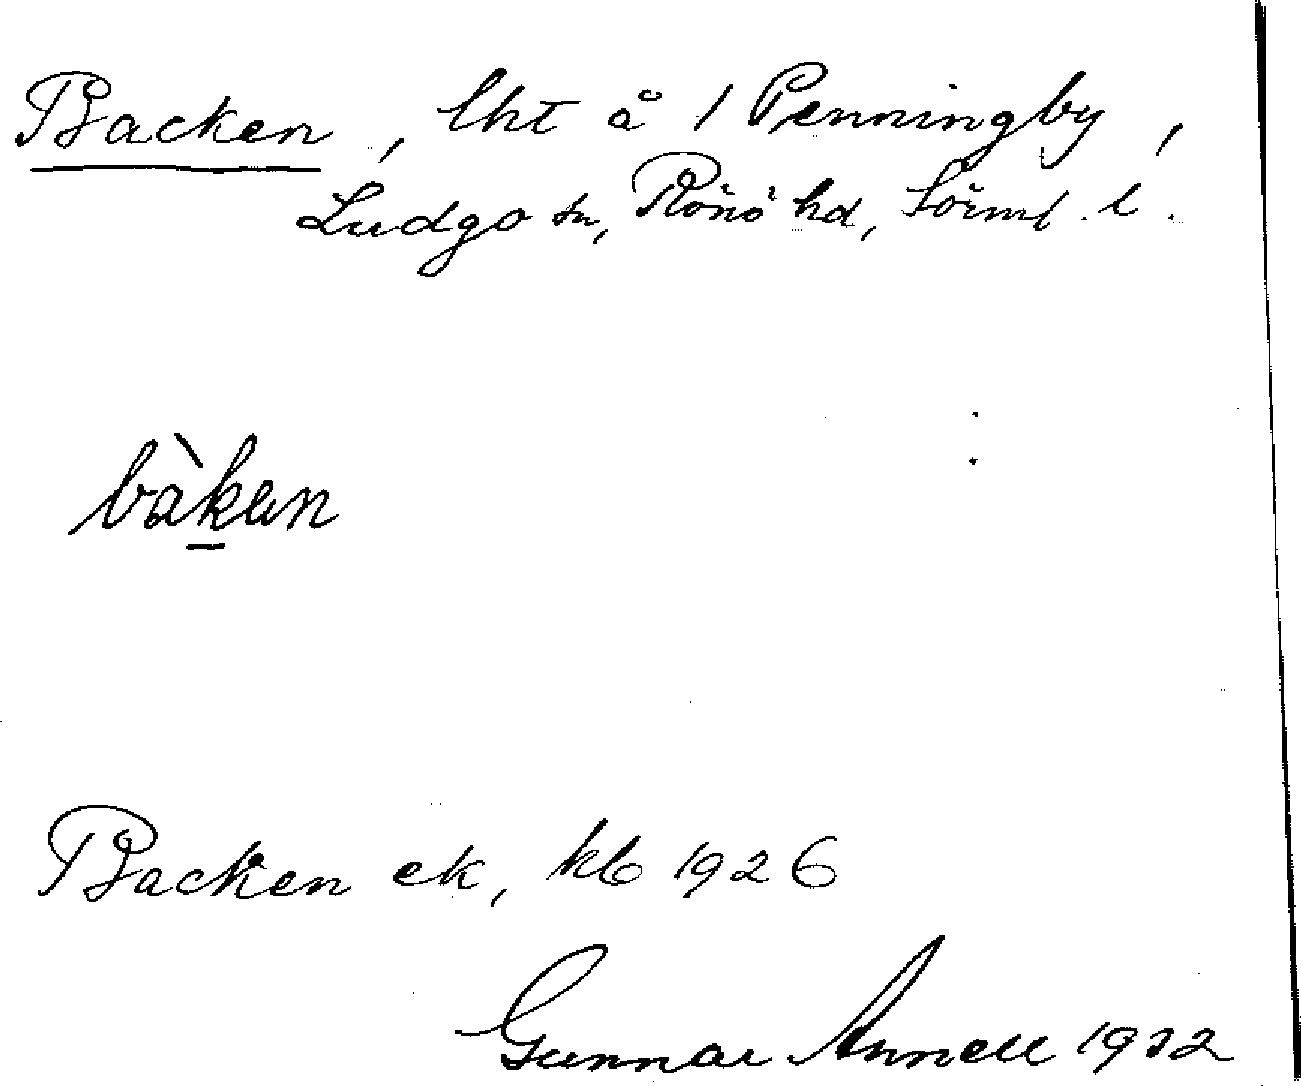 Backen, lht å 1 Penningby,
Ludgo sn, Rönö hd, Sörml. l.
bàkan
Backen ek, kb 1926
Gunnar Annell 1932